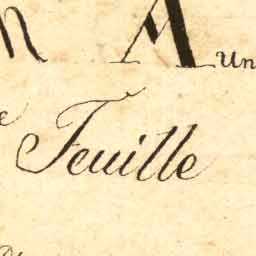 Mun
Feuille